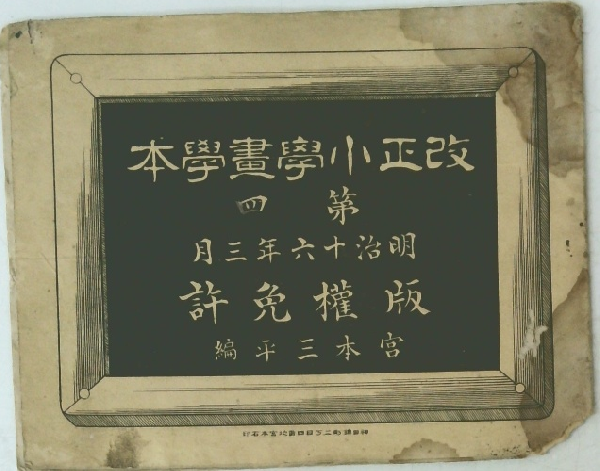 改正小學畫學本
第四
明治十六年三月
版權免許
宮本三平編